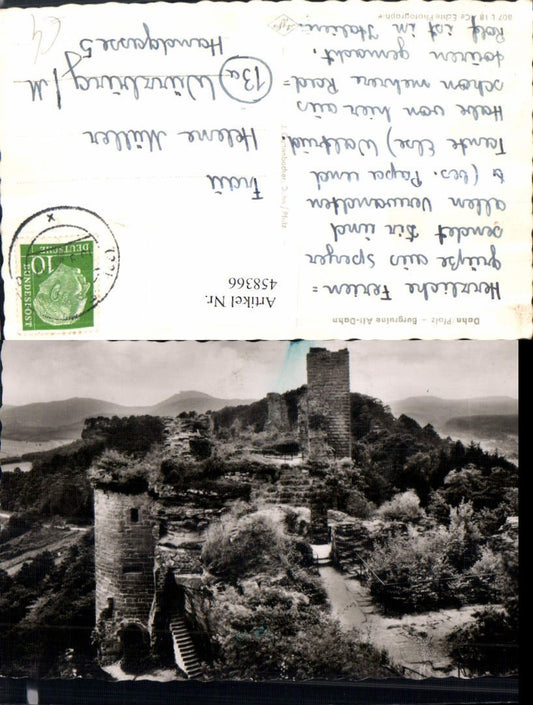 Dahn Pfalz - Burgruine Alt-Dahn
Herzliche Ferien=
grüße aus Speyer
sendet Dir und
allen Verwandten
(bes. Papa und
Tante Else) Waltrud.
Habe von hier aus
schon mehrere Rad=
touren gemacht.
Rolf ist in Italien.
Echte Photographie
Frau
Helene Müller
13a Würzburg/M
Handgasse 5
10
DEUTSCHE
BUNDESPOST
Artikel Nr.
458366